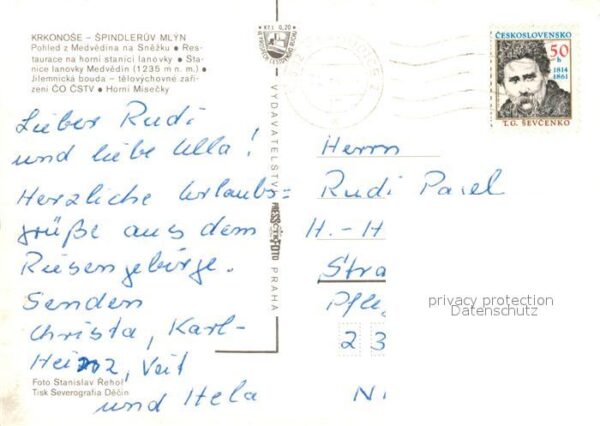 KRKONOŠE – ŠPINDLERŮV MLÝN
Pohled z Medvědína na Sněžku ● Res-
taurace na horní stanici lanovky ● Sta-
nice lanovky Medvědín (1235 m n. m.) ●
Jilemnická bouda – tělovýchovné zaří-
zení ČO ČSTV ● Horní Mísečky
Lieber Rudi
und liebe Ulla!
Herzliche Urlaubs=
grüße aus dem
Riesengebirge.
Senden
Christa, Karl-
Heinz, Veit
und Hela
Foto Stanislav Řehoř
Tisk Severografia Děčín
Kčs 0,20
VYDAVATELSTVÍ
PRESSFOTO
PRAHA
ČESKOSLOVENSKO
50
h
1814
1861
T. G. ŠEVČENKO
Herrn
Rudi Pavel
H.-H
Stra
Pfle
2 3
privacy protection
Datenschutz